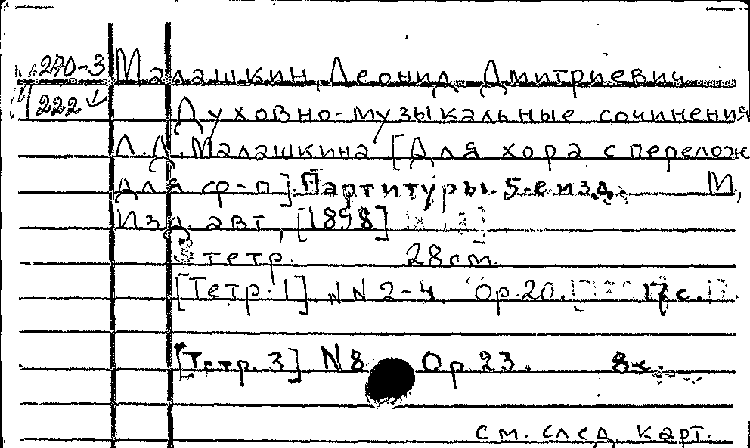 270-3 Малашкин, Леонид Дмитриевич
222 Духовно-музыкальные сочинения
Л.Д. Малашкина [Для хора с перелож
для ф-п]. Партитуры. 5-е изд. М,
Изд. авт, [1898]
тетр. 28 см.
[Тетр. 1] NN 2-4. Ор. 20. 17 с.
[Тетр. 3] N 8 Ор 23. 8 с.
см. след. карт.